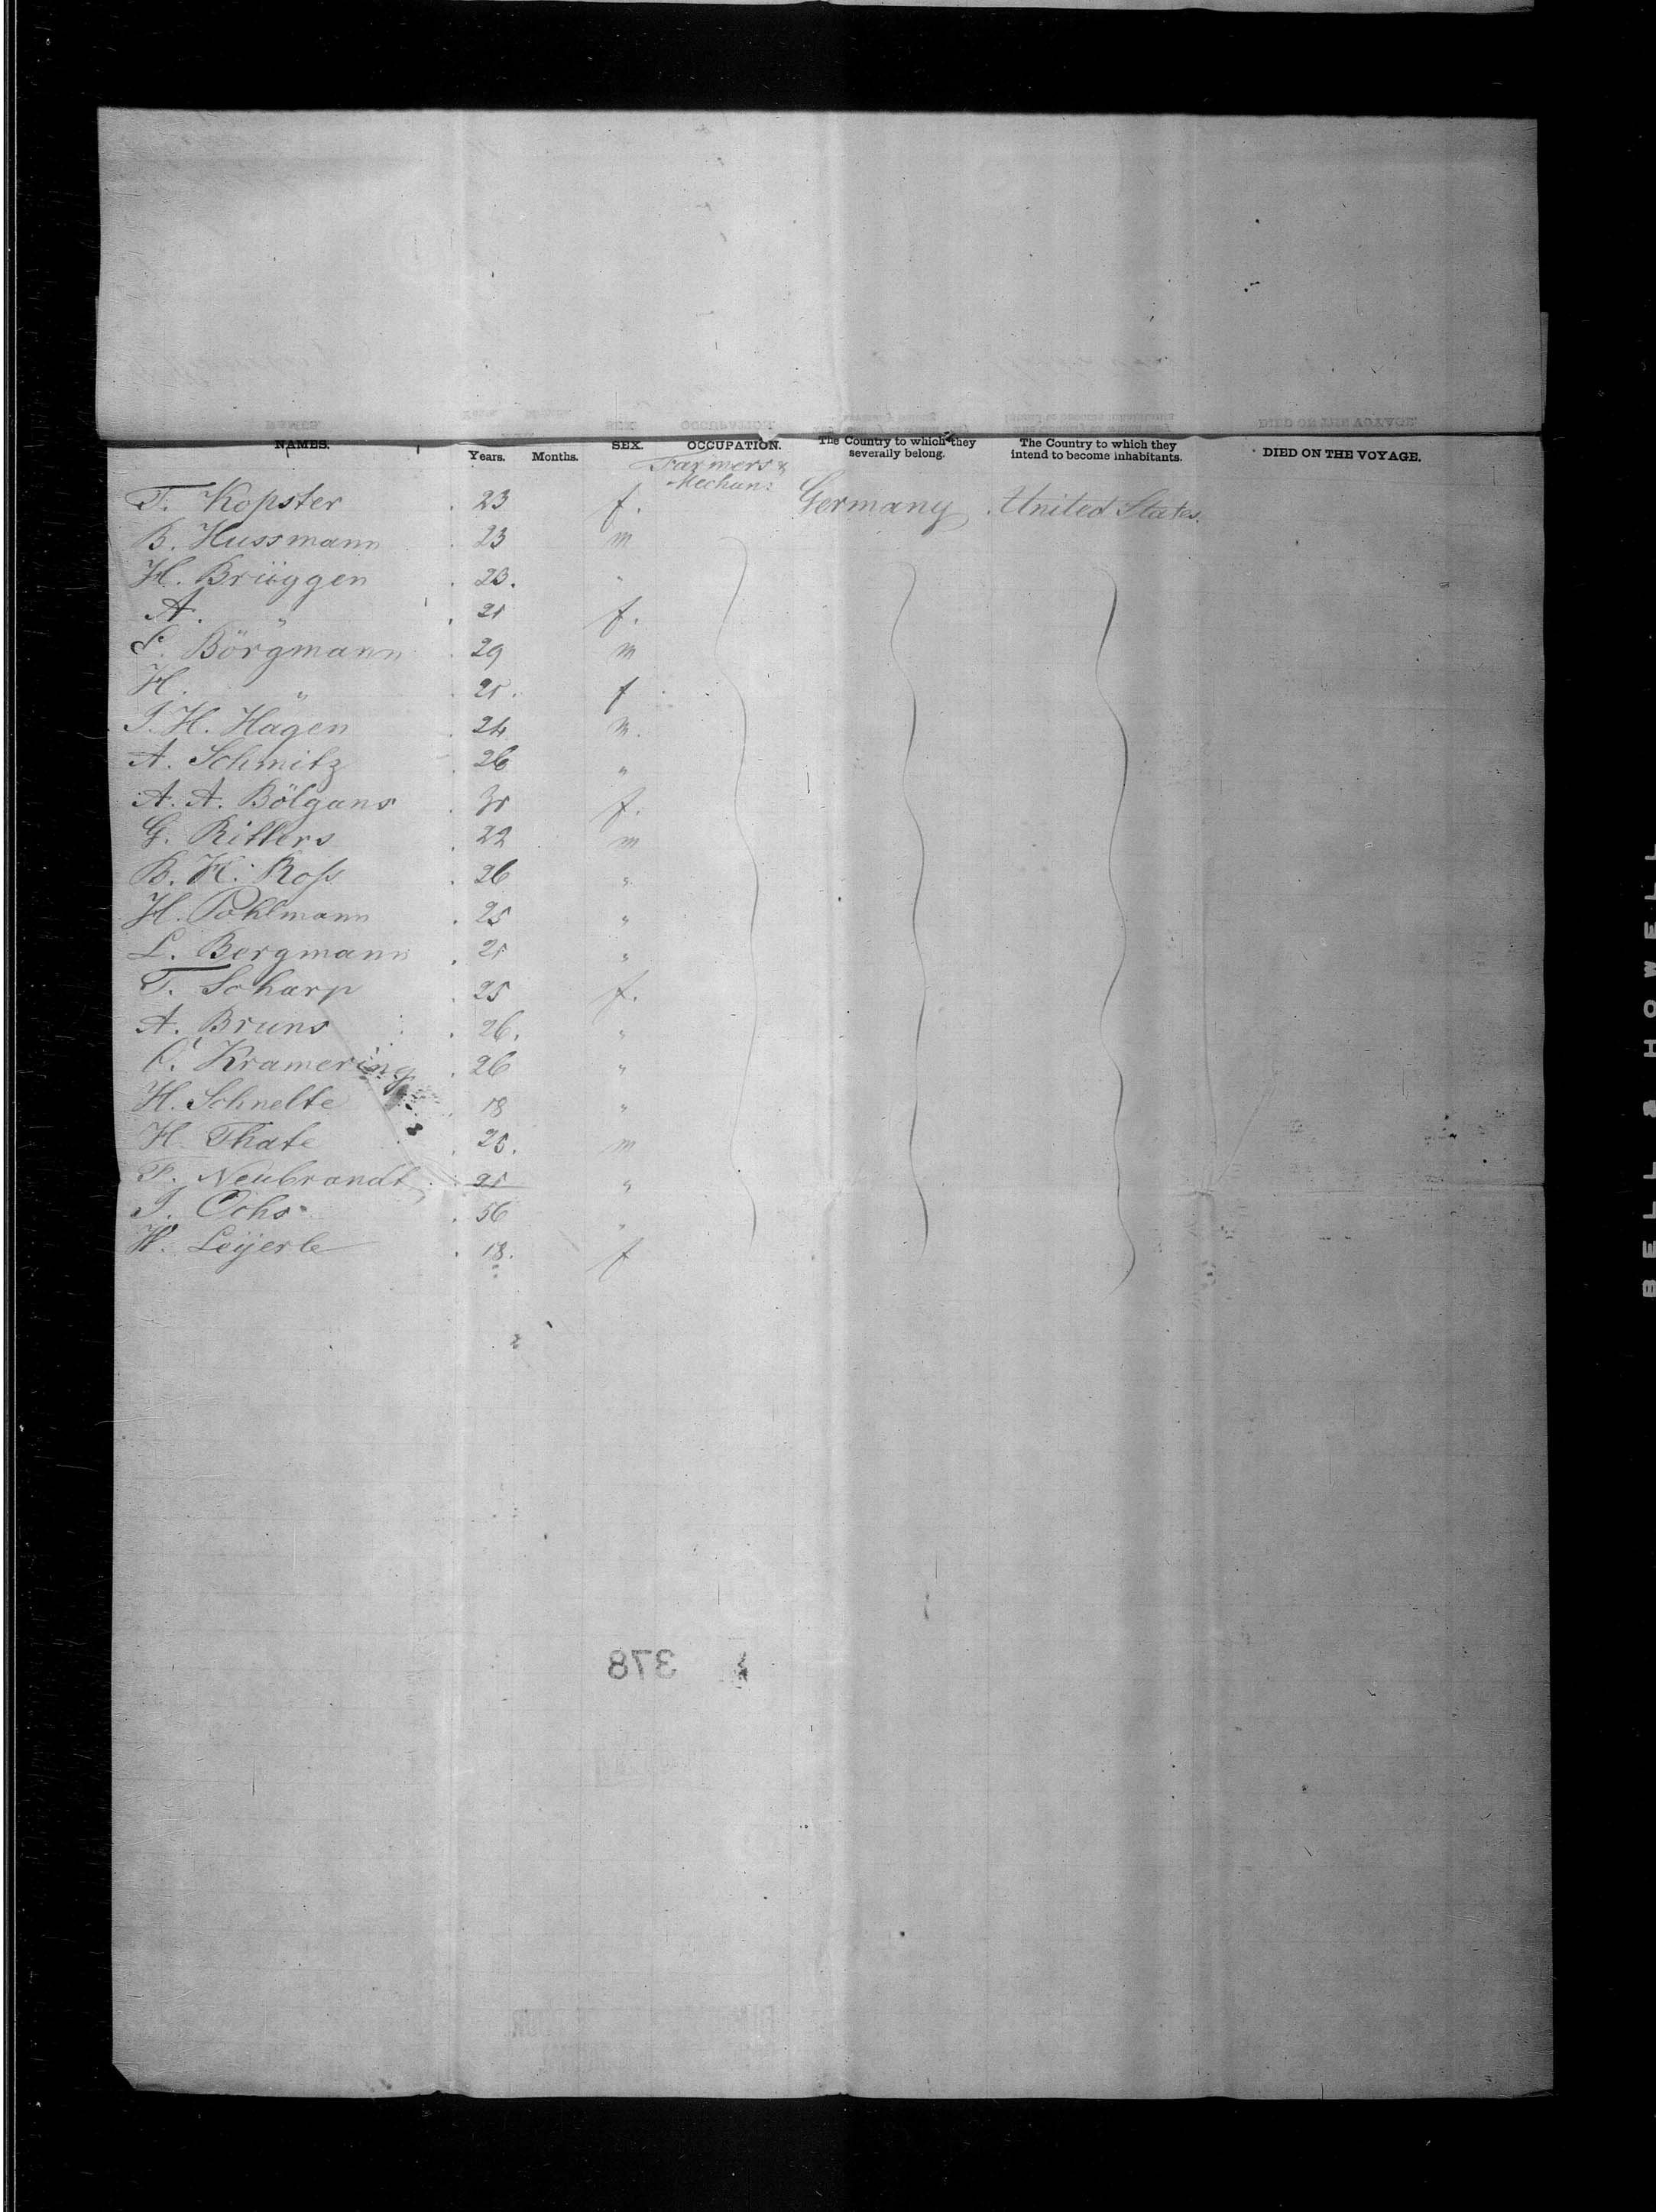 NAMES. Years. Months. SEX. OCCUPATION. The Country to which they severally belong. The Country to which they intend to become inhabitants. DIED ON THE VOYAGE.
Farmers &
Mechans
T. Kopster 23 f. Germany United States.
B. Hussmann 23 m
H. Brüggen 23. "
A. " 21 f.
Börgmann 29 m
H. " 21. f
J. H. Hagen 24 m.
A. Schmitz 26 "
A. A. Bölgans f.
G. Ritters 22 m
B. H. Ross 26 "
H. Pohlmann 25 "
L. Bergmann 21 "
T. Scharp 25 f.
A. Bruns 26. "
Kramering 26 "
H. Schnelte 18 "
H. Thate 25. m
F. Neubrandt 21 "
J. Ochs 56 "
Leyerle 18. f
378
BELL & HOWELL